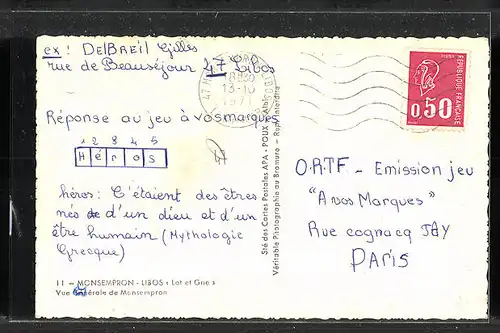 ex: DelBreil Gilles
rue de Beauséjour 47 Libos
18H30
13-10
1971
0,50
RÉPUBLIQUE FRANÇAISE
Réponse au jeu à vos marques
1 2 3 4 5
Héros
47
héros: C'étaient des êtres
nés de d'un dieu et d'un
être humain (Mythologie
Grecque)
11 - MONSEMPRON - LIBOS « Lot et Gne »
Vue Générale de Monsempron
Sté des Cartes Postales APA - POUX - Albi
Véritable Photographie au Bromure - Repr. interdite
O.R.T.F - Emission jeu
"A vos Marques"
Rue cognacq JAY
PARIS